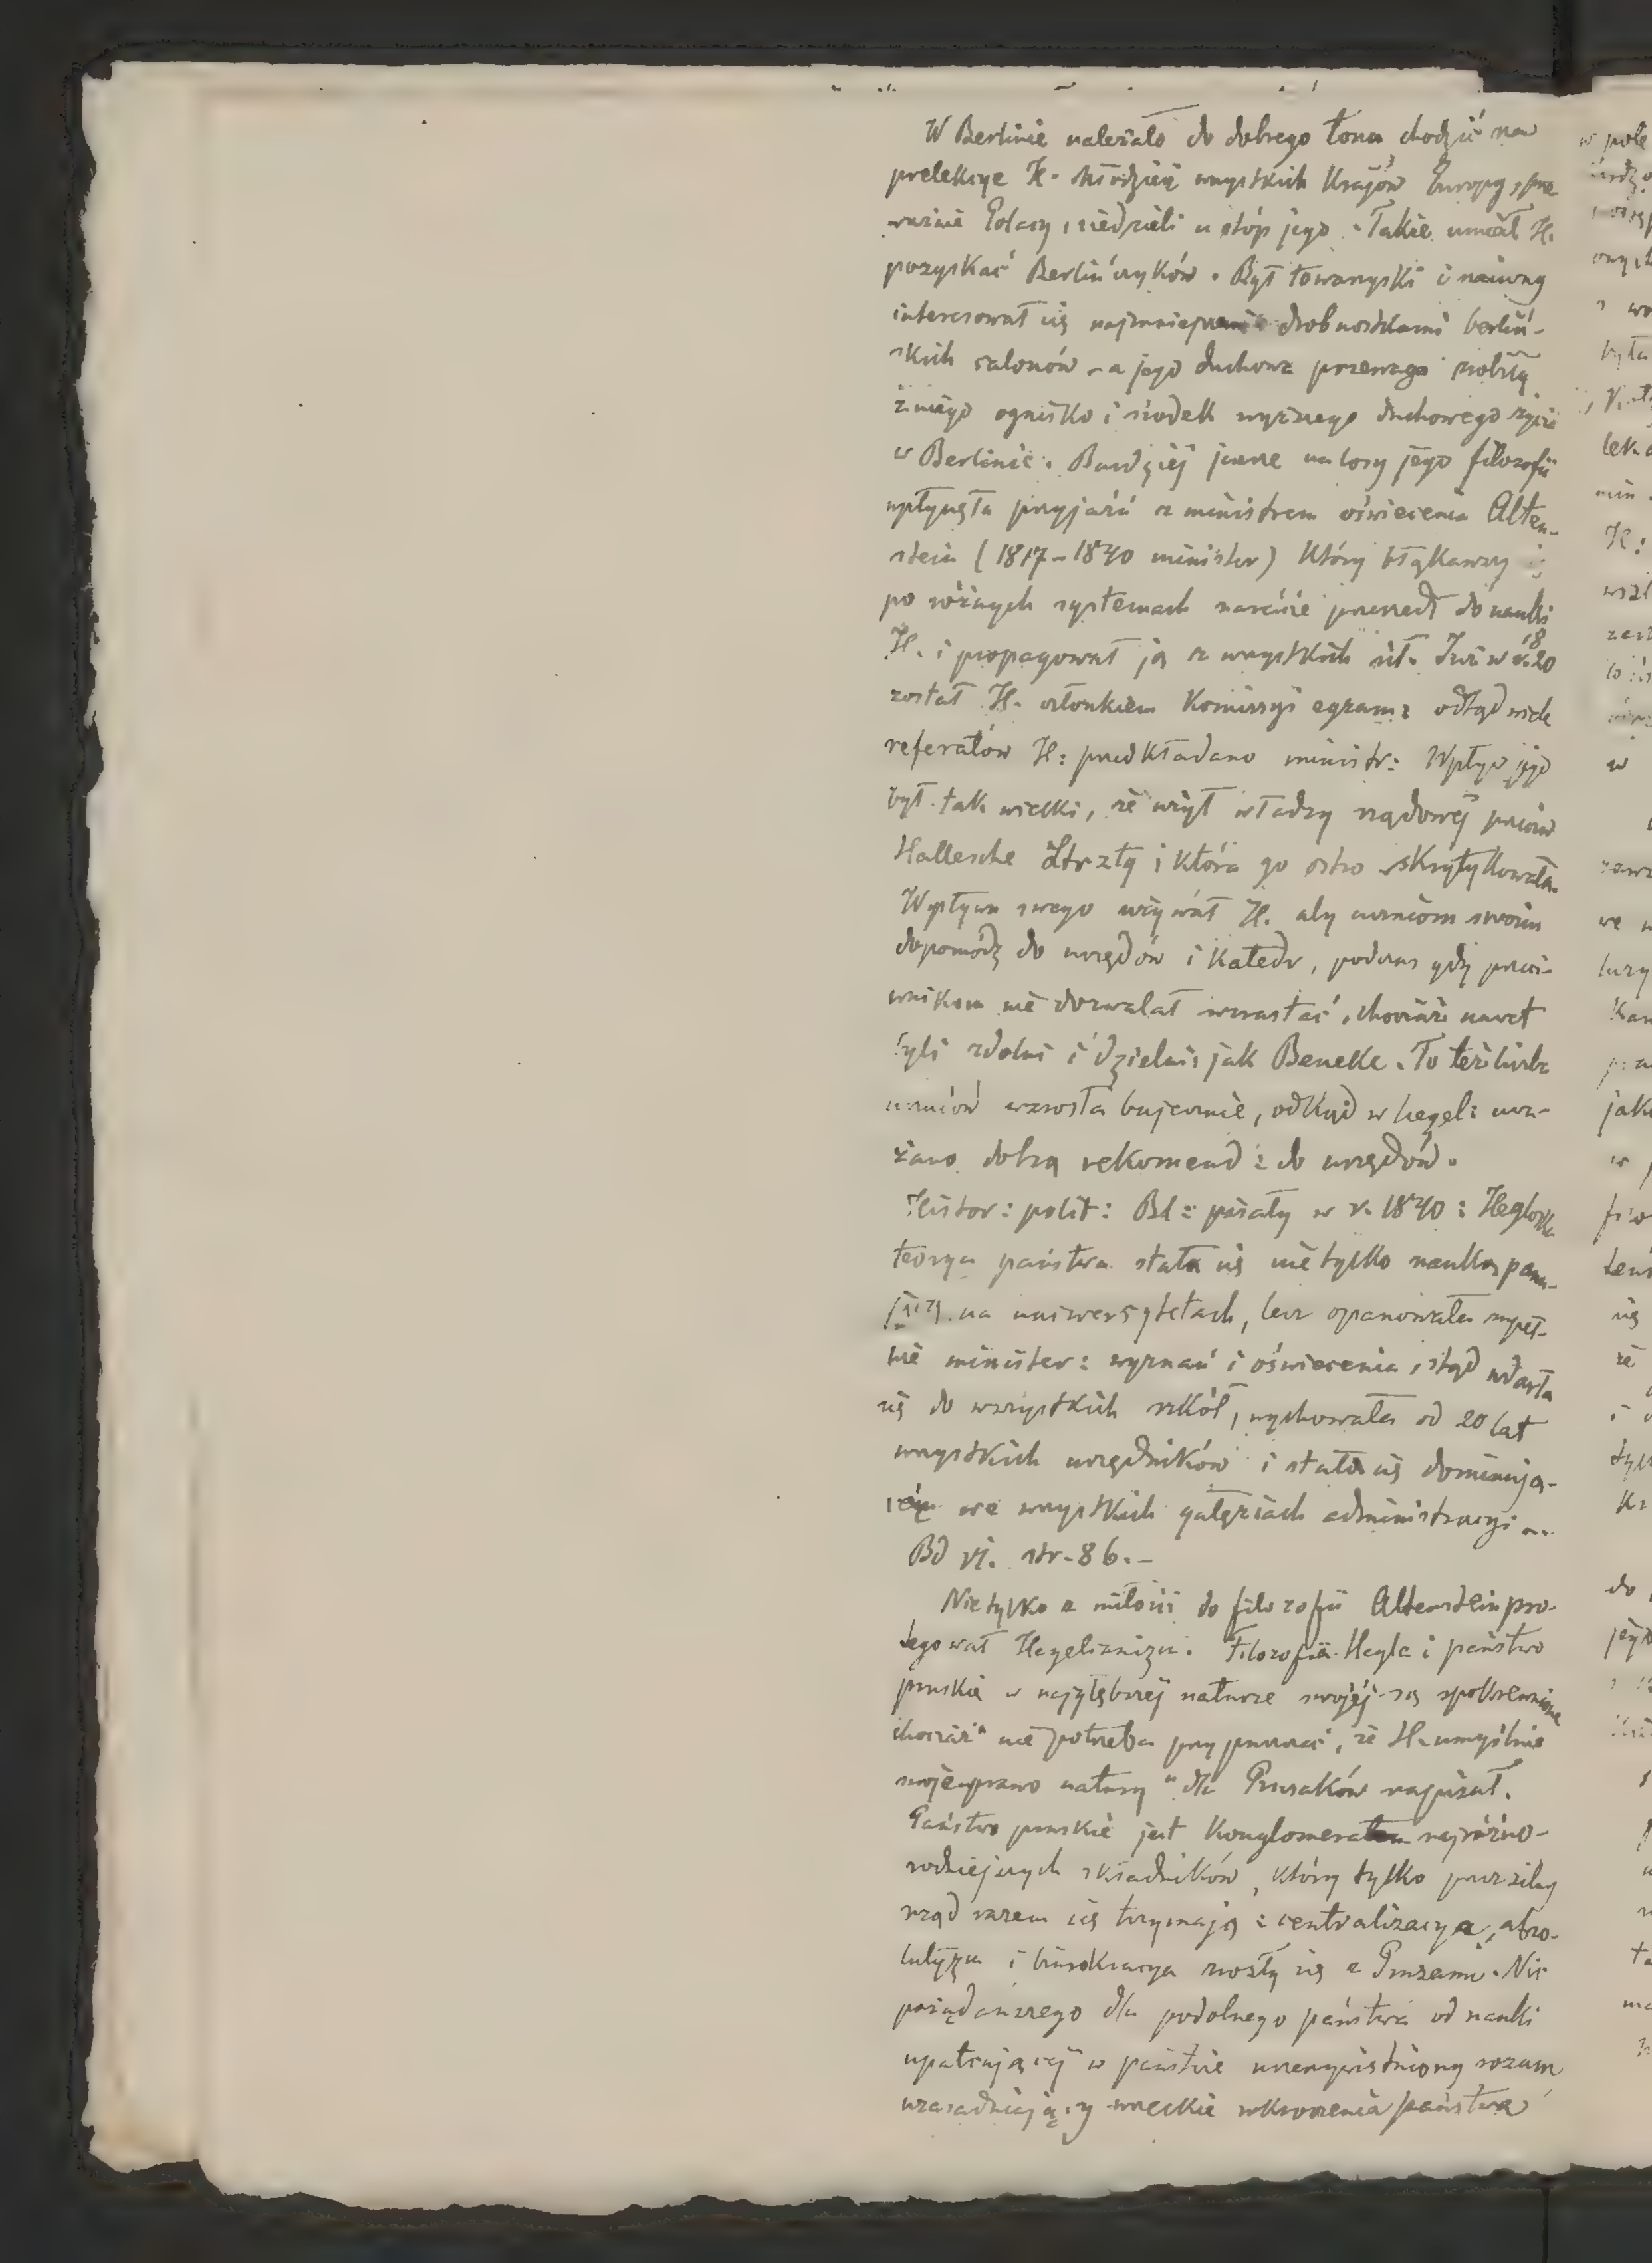 W Berlinie należało do dobrego tonu chodzić na
prelekcye H. Młodzież wszystkich krajów Europy, prze
ważnie Polacy, siedzieli u stóp jego. Także umiał H.
pozyskać Berlińczyków. Był towarzyski i naiwny
interesował się drobnostkami berliń-
skich salonów – a jego duchowa przewaga zrobiły
z niego ognisko i środek wyższego duchowego życia
w Berlinie. Bardziej jeszcze na losy jego filozofii
wpłynęła przyjaźń z ministrem oświecenia Alten-
stein (1817–1840 minister) który błąkawszy się
po różnych systemach narście przeszedł do nauki
H. i propagował ją z wszystkich sił. Już w r. 1820
został H. członkiem Komissyi egzam: odtąd wiele
referatów H: przedkładano ministr: Wpływ jego
był tak wielki, że użył władzy rządowej przeciw
Hallesche Ltrztg i która go ostro skrytykowała.
Wpływu swego używał H. aby uczniom swoim
dopomódz do urzędów i katedr, podczas gdy przeci-
wnikom nie dozwalał wzrastać, chociaż nawet
byli zdolni i dzielni, jak Beneke. To też liczba
uczniów wzrosła bujecznie, odkąd w hegel: uwa-
żano dobrą rekomend: do urzędów.
Histor: polit: Bl: pisały w r. 1840: Heglowska
teorya państwa stała się nietylko nauką panu-
jącą na uniwersytetach, lecz opanowała zupeł-
nie minister: wyznań i oświecenia, stąd wdarła
się do wszystkich szkół, wychowała od 20 lat
wszystkich urzędników i stała się dominują-
cą we wszystkich gałęziach administracyi ...
Bd VI. str. 86. –
Nietylko z miłości do filozofii Altenstein pro-
tegował Hegelianizm. Filozofia Hegla i państwo
pruskie w najgłębszej naturze swojéj są spokrewnione
chociaż nie potrzeba przypuszczać, że H. umyślnie
swoje „prawo natury" dla Prusaków napisał.
Państwo pruskie jest konglomeratem najróżno-
rodniejszych składników, który tylko przez silny
rząd razem się trzymają: centralizacya, abso-
lutyzm i biurokracya zrosły się z Prusami. Nic
pożądańszego dla podobnego państwa od nauki
upatrującej w państwie urzeczywistniony rozum
uzasadniający wszelkie wkroczenia państwa